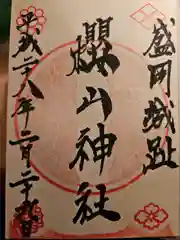 盛岡城趾
櫻山神社
平成二十八年二月二十八日